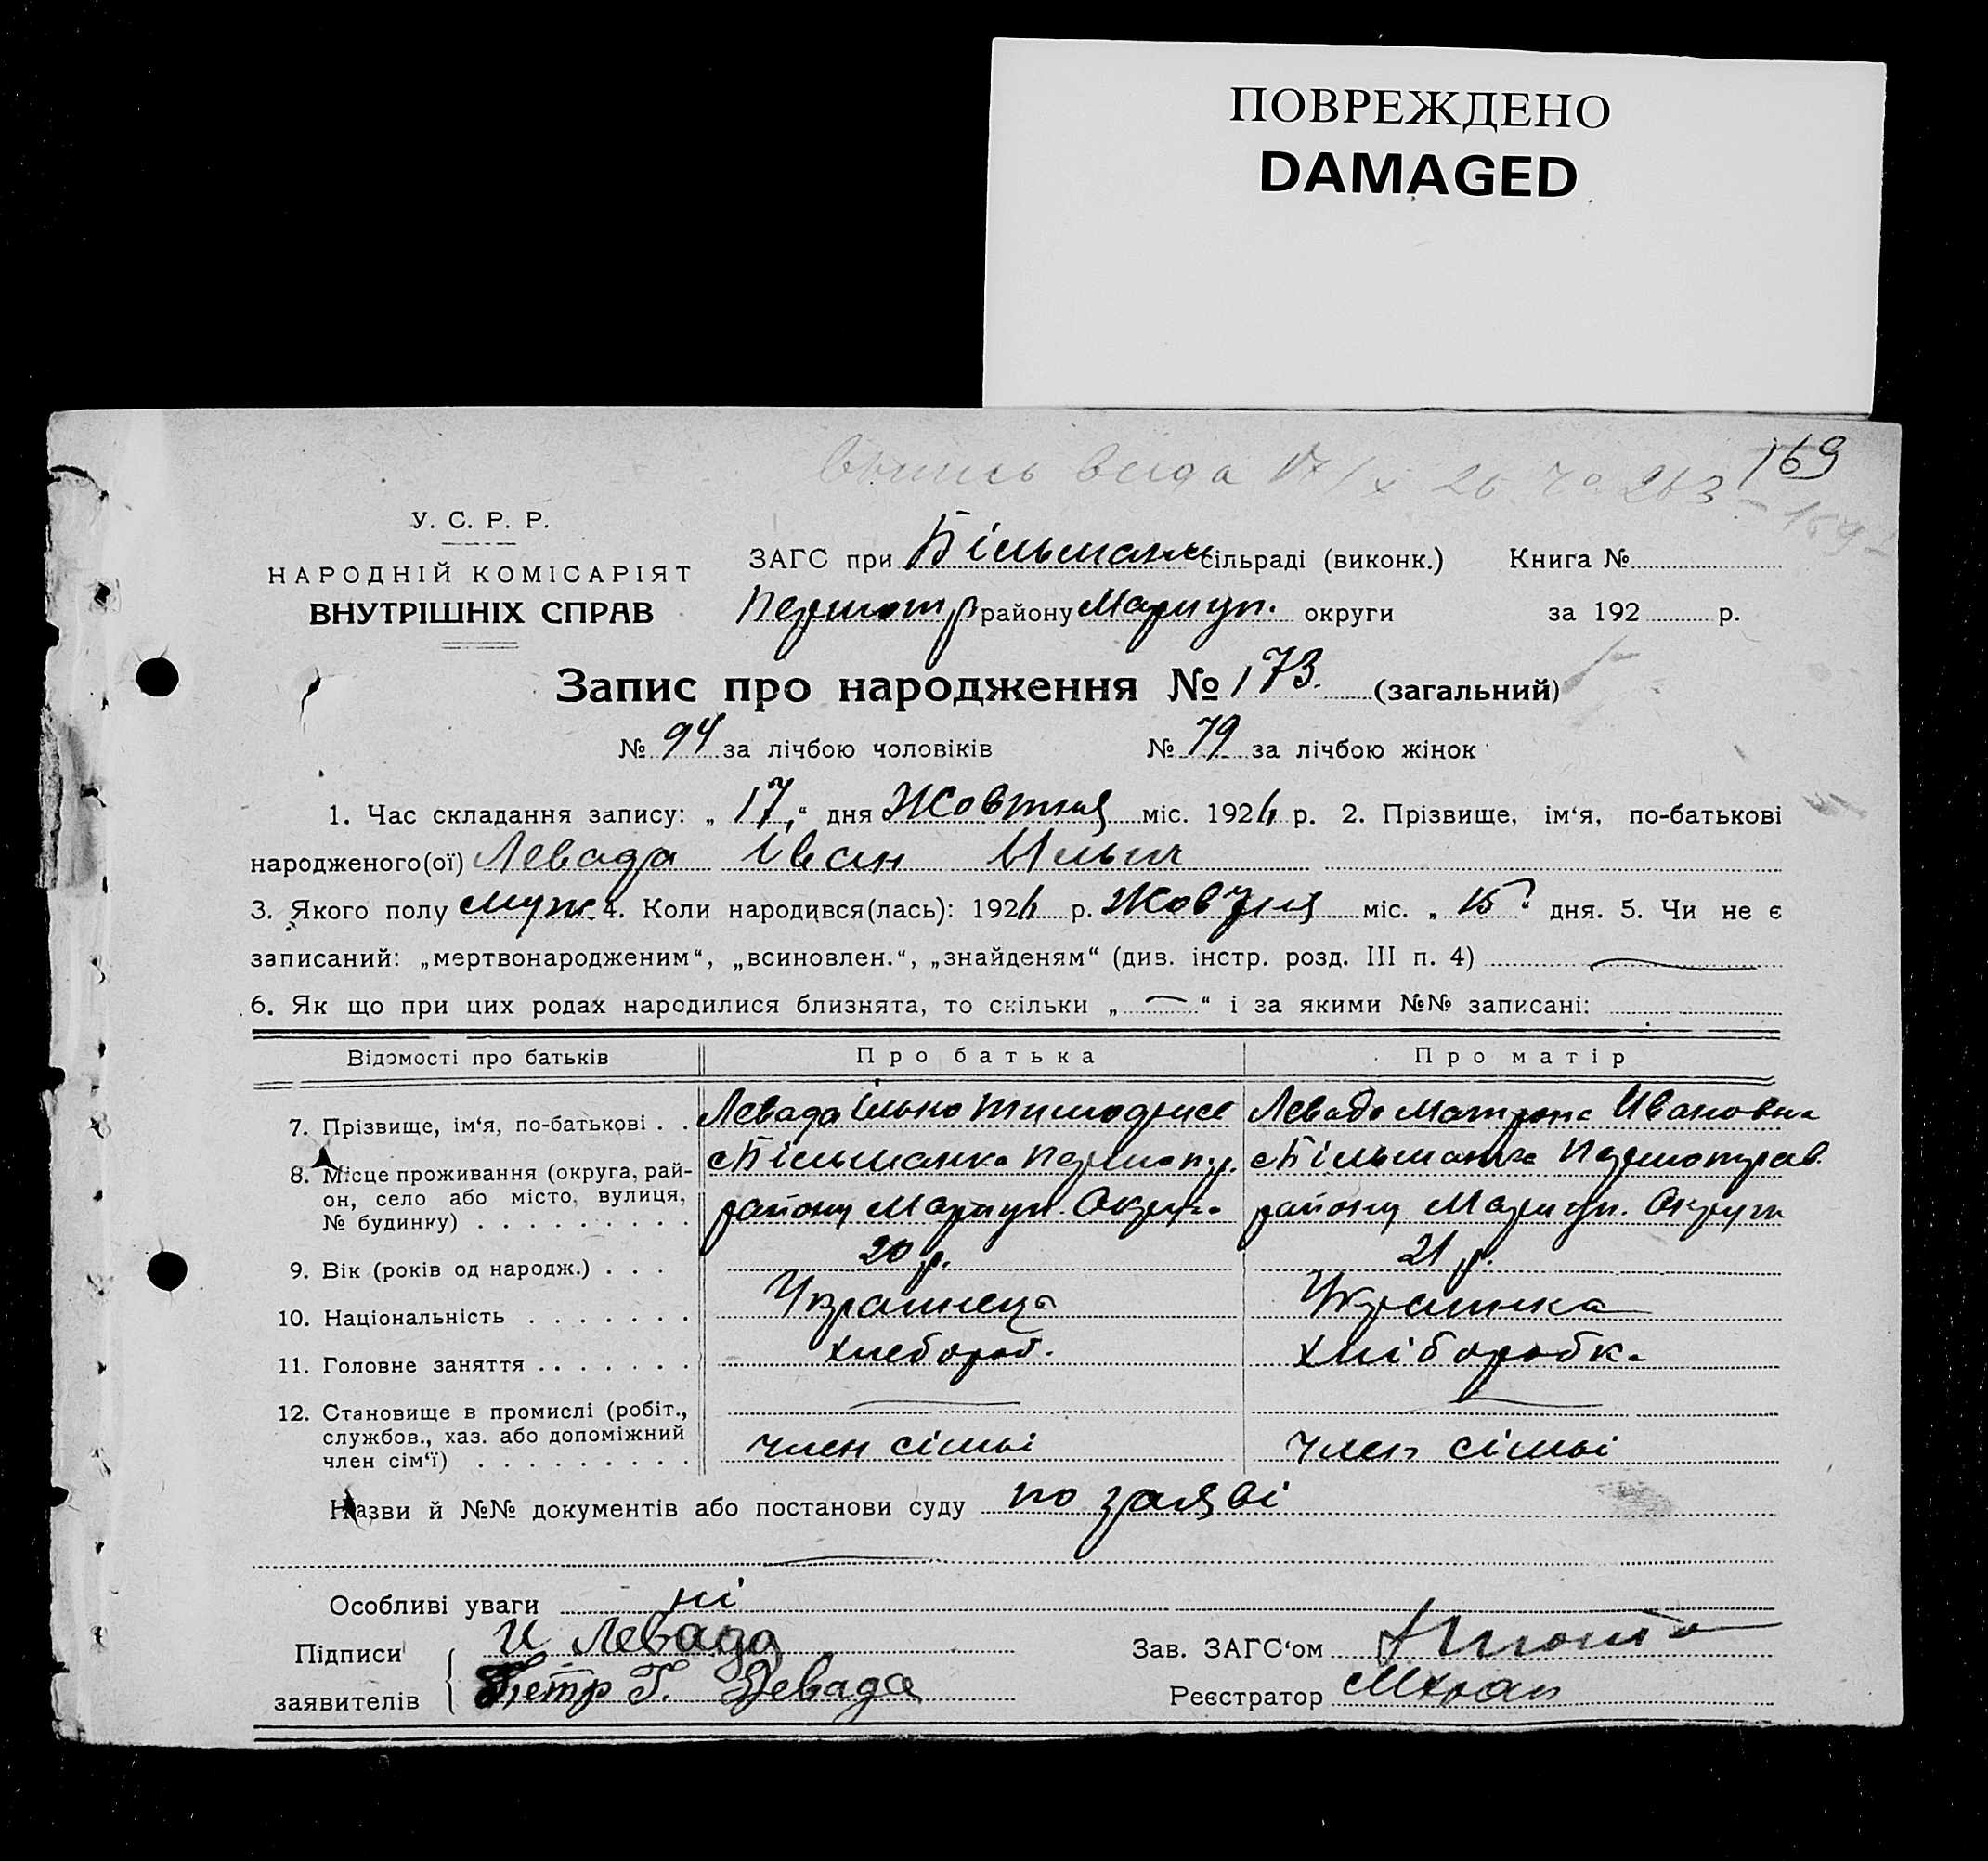 ПОВРЕЖДЕНО
DAMAGED
169
У. С. Р. Р.
НАРОДНІЙ КОМІСАРІЯТ
ВНУТРІШНІХ СПРАВ
ЗАГС при Більманк сільраді (виконк.) Книга №
району Мариуп. округи за 192 р.
Запис про народження № 173. (загальний)
№ 94 за лічбою чоловіків № 79 за лічбою жінок
1. Час складання запису: „ 17 “ дня Жовтня міс. 192 р. 2. Прізвище, ім‘я, по-батькові
народженого(ої) Левада Іван Ильич
3. Якого полу муж. 4. Коли народився(лась): 192 р. Жовтня міс. „ 15 дня. 5. Чи не є
записаний: „мертвонародженим“, „всиновлен.“, „знайденям“ (див. інстр. розд. III п. 4)
6. Як що при цих родах народилися близнята, то скільки „ — “ і за якими №№ записані:
Відомості про батьків Про батька Про матір
7. Прізвище, ім‘я, по-батькові . . Левада Ілько Левада Матрона Ивановна
8. Місце проживання (округа, рай-
он, село або місто, вулиця,
№ будинку) . . . . . . . . .
с Більманка с Більманка
району Мариуп. Округи району Мариуп. Округи
9. Вік (років од народж.) . . . 20 р. 21 р.
10. Національність . . . . . . . Украинець Украинка
11. Головне заняття . . . . . . . хлебороб. хліборобка
12. Становище в промислі (робіт.,
службов., хаз. або допоміжний
член сім‘ї) . . . . . . . . .
член сімьі член сімьі
Назви й №№ документів або постанови суду по заяві
Особливі уваги ні
Підписи И Левада Зав. ЗАГС‘ом
заявителів Петр Г. Левада Реєстратор